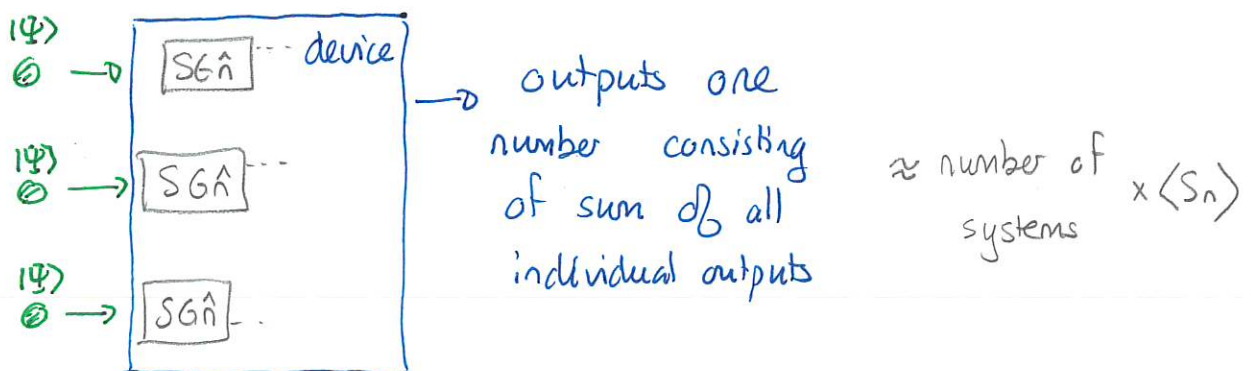 |Ψ⟩
SGn̂ ---- device
outputs one
number consisting
of sum of all
individual outputs
|Ψ⟩
SGn̂ ----
≈ number of
systems × ⟨Sn⟩
|Ψ⟩
SGn̂ ---